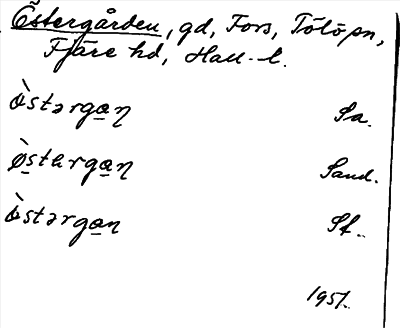 Östergården, gd, Fors, Tölö sn,
Fjäre hd, Hall. l.
ò̵stərga̲ɳ Sa.
ò̵stərga̲ɳ Sand.
ò̵stərga̲ɳ Sf.
1951.